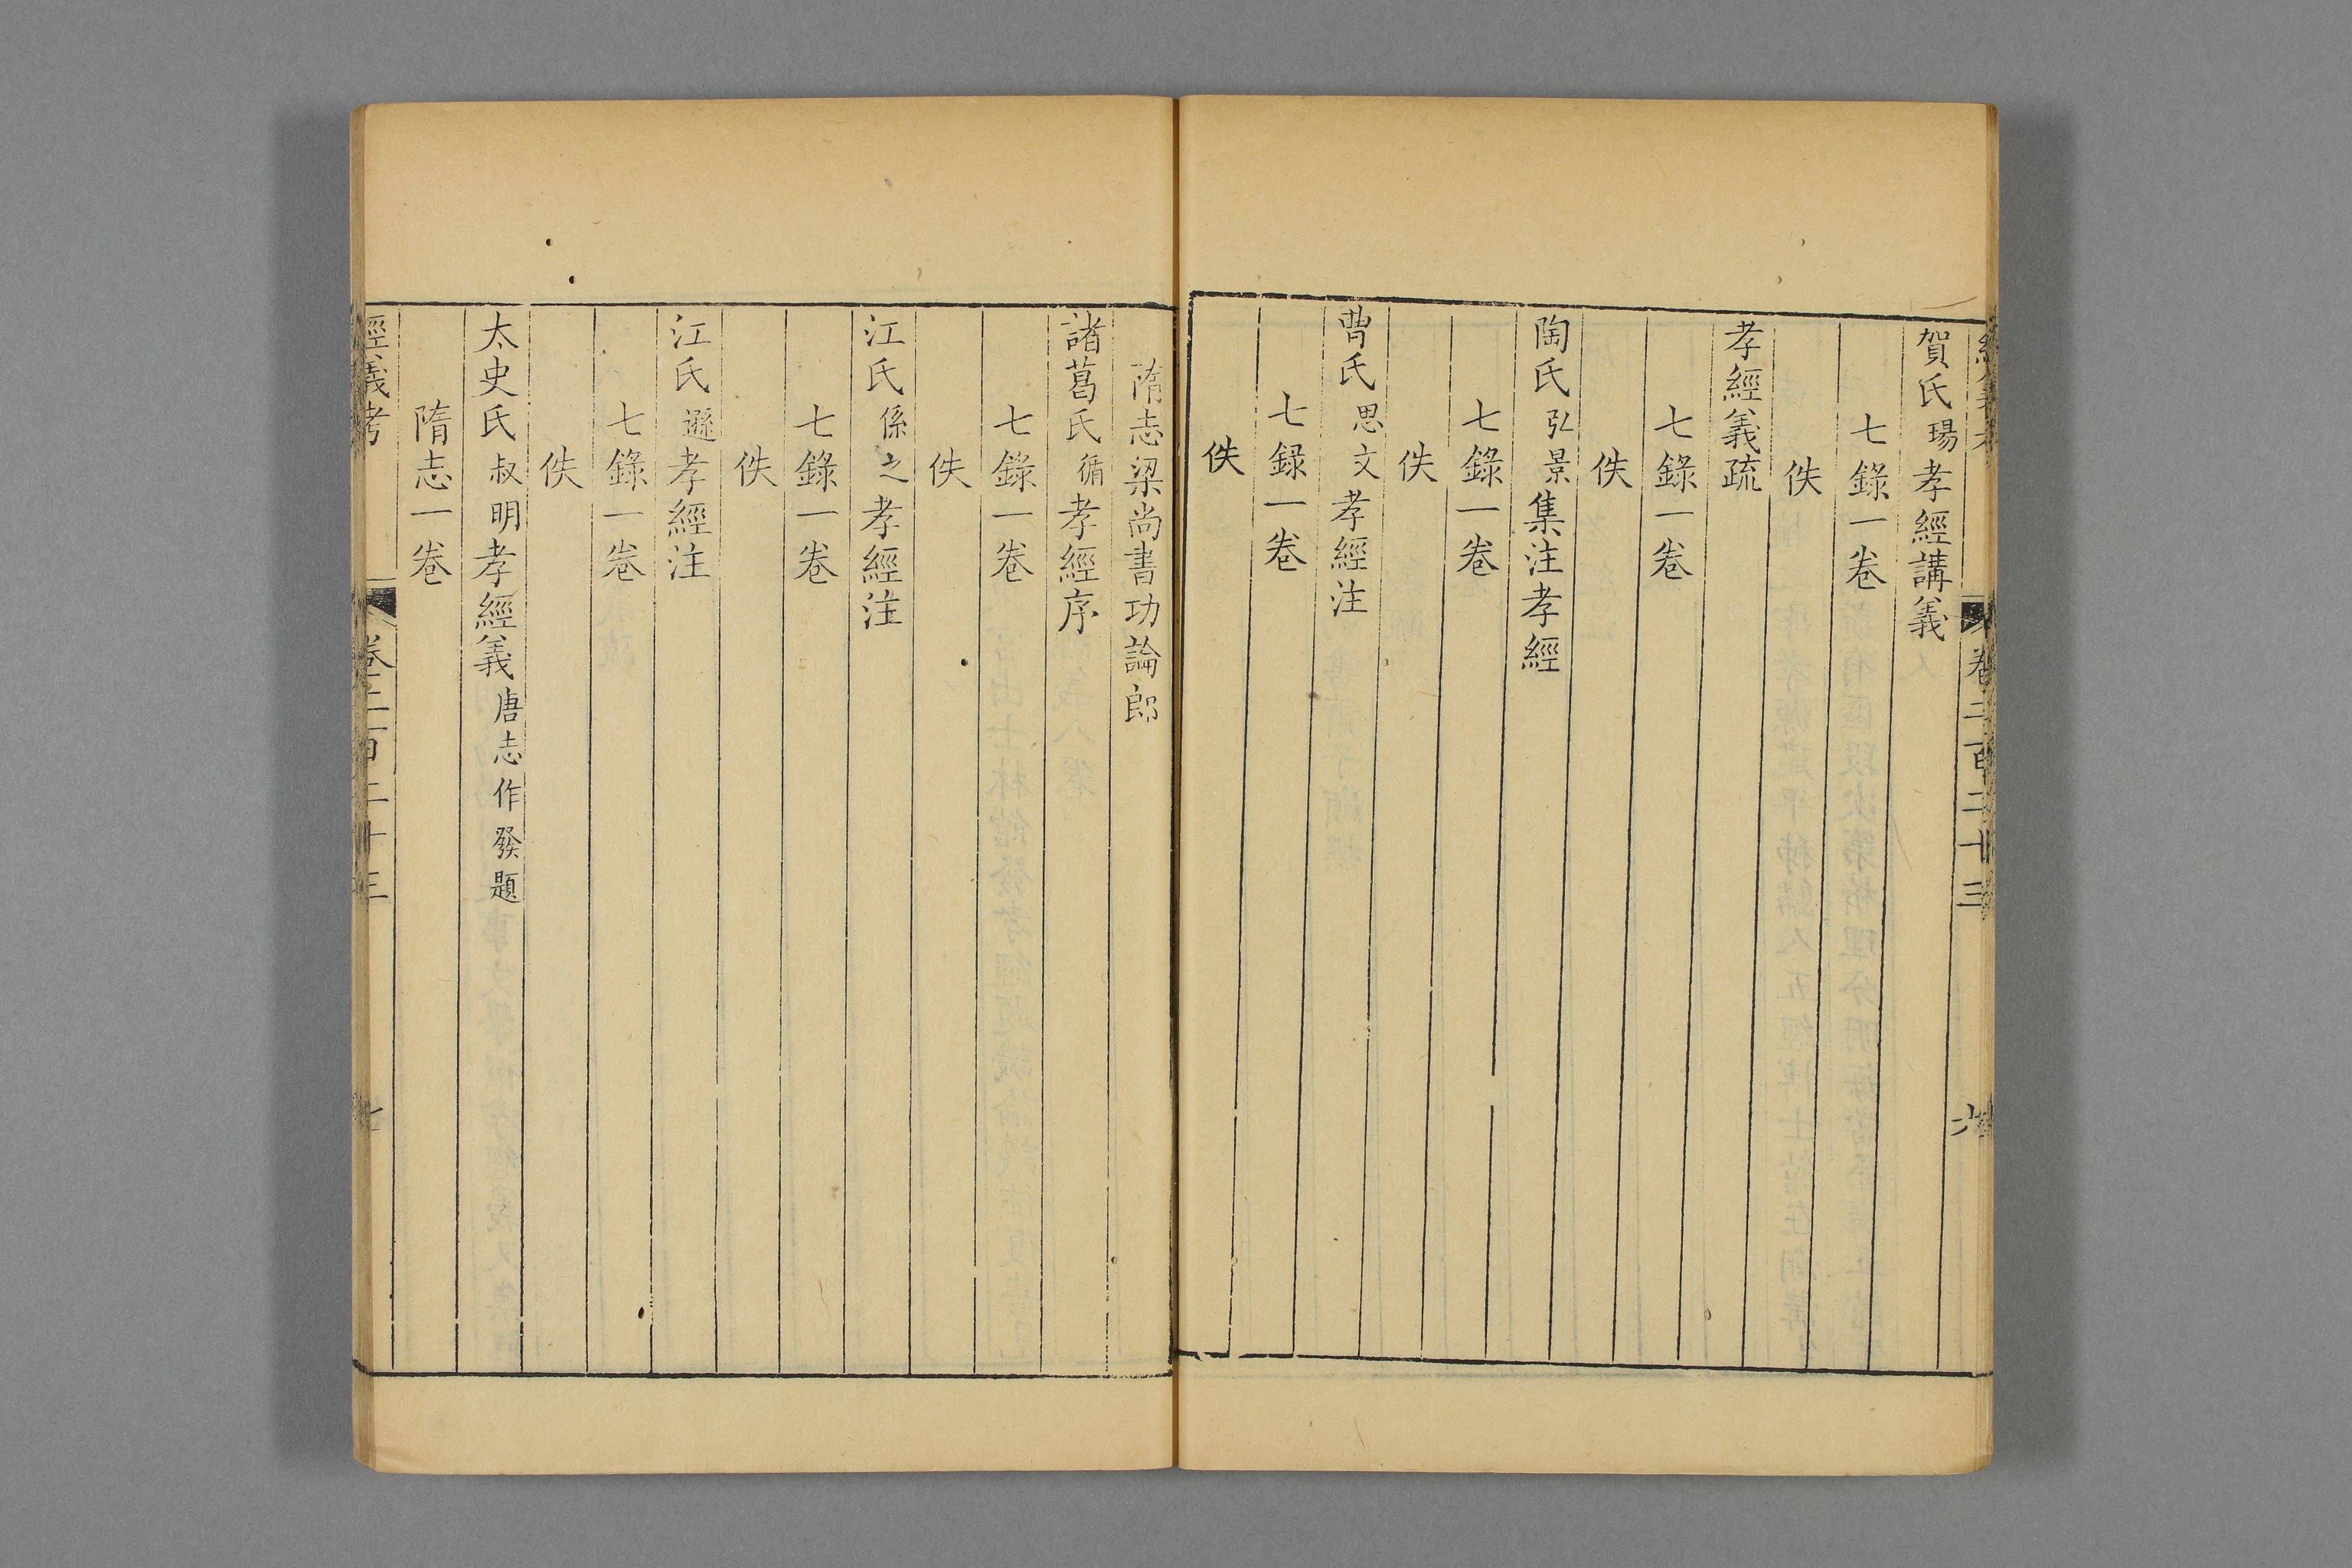 經義考 卷二百二十三 六
賀氏瑒孝經講義
七錄一卷
佚
孝經義疏
七錄一卷
佚
陶氏弘景集注孝經
七錄一卷
佚
曹氏思文孝經注
七録一卷
佚
隋志梁尚書功論郎
諸葛氏循孝經序
七錄一卷
佚
江氏係之孝經注
七錄一卷
佚
江氏遜孝經注
七錄一卷
佚
太史氏叔明孝經義唐志作發題
隋志一卷
經義考 卷二百二十三 七